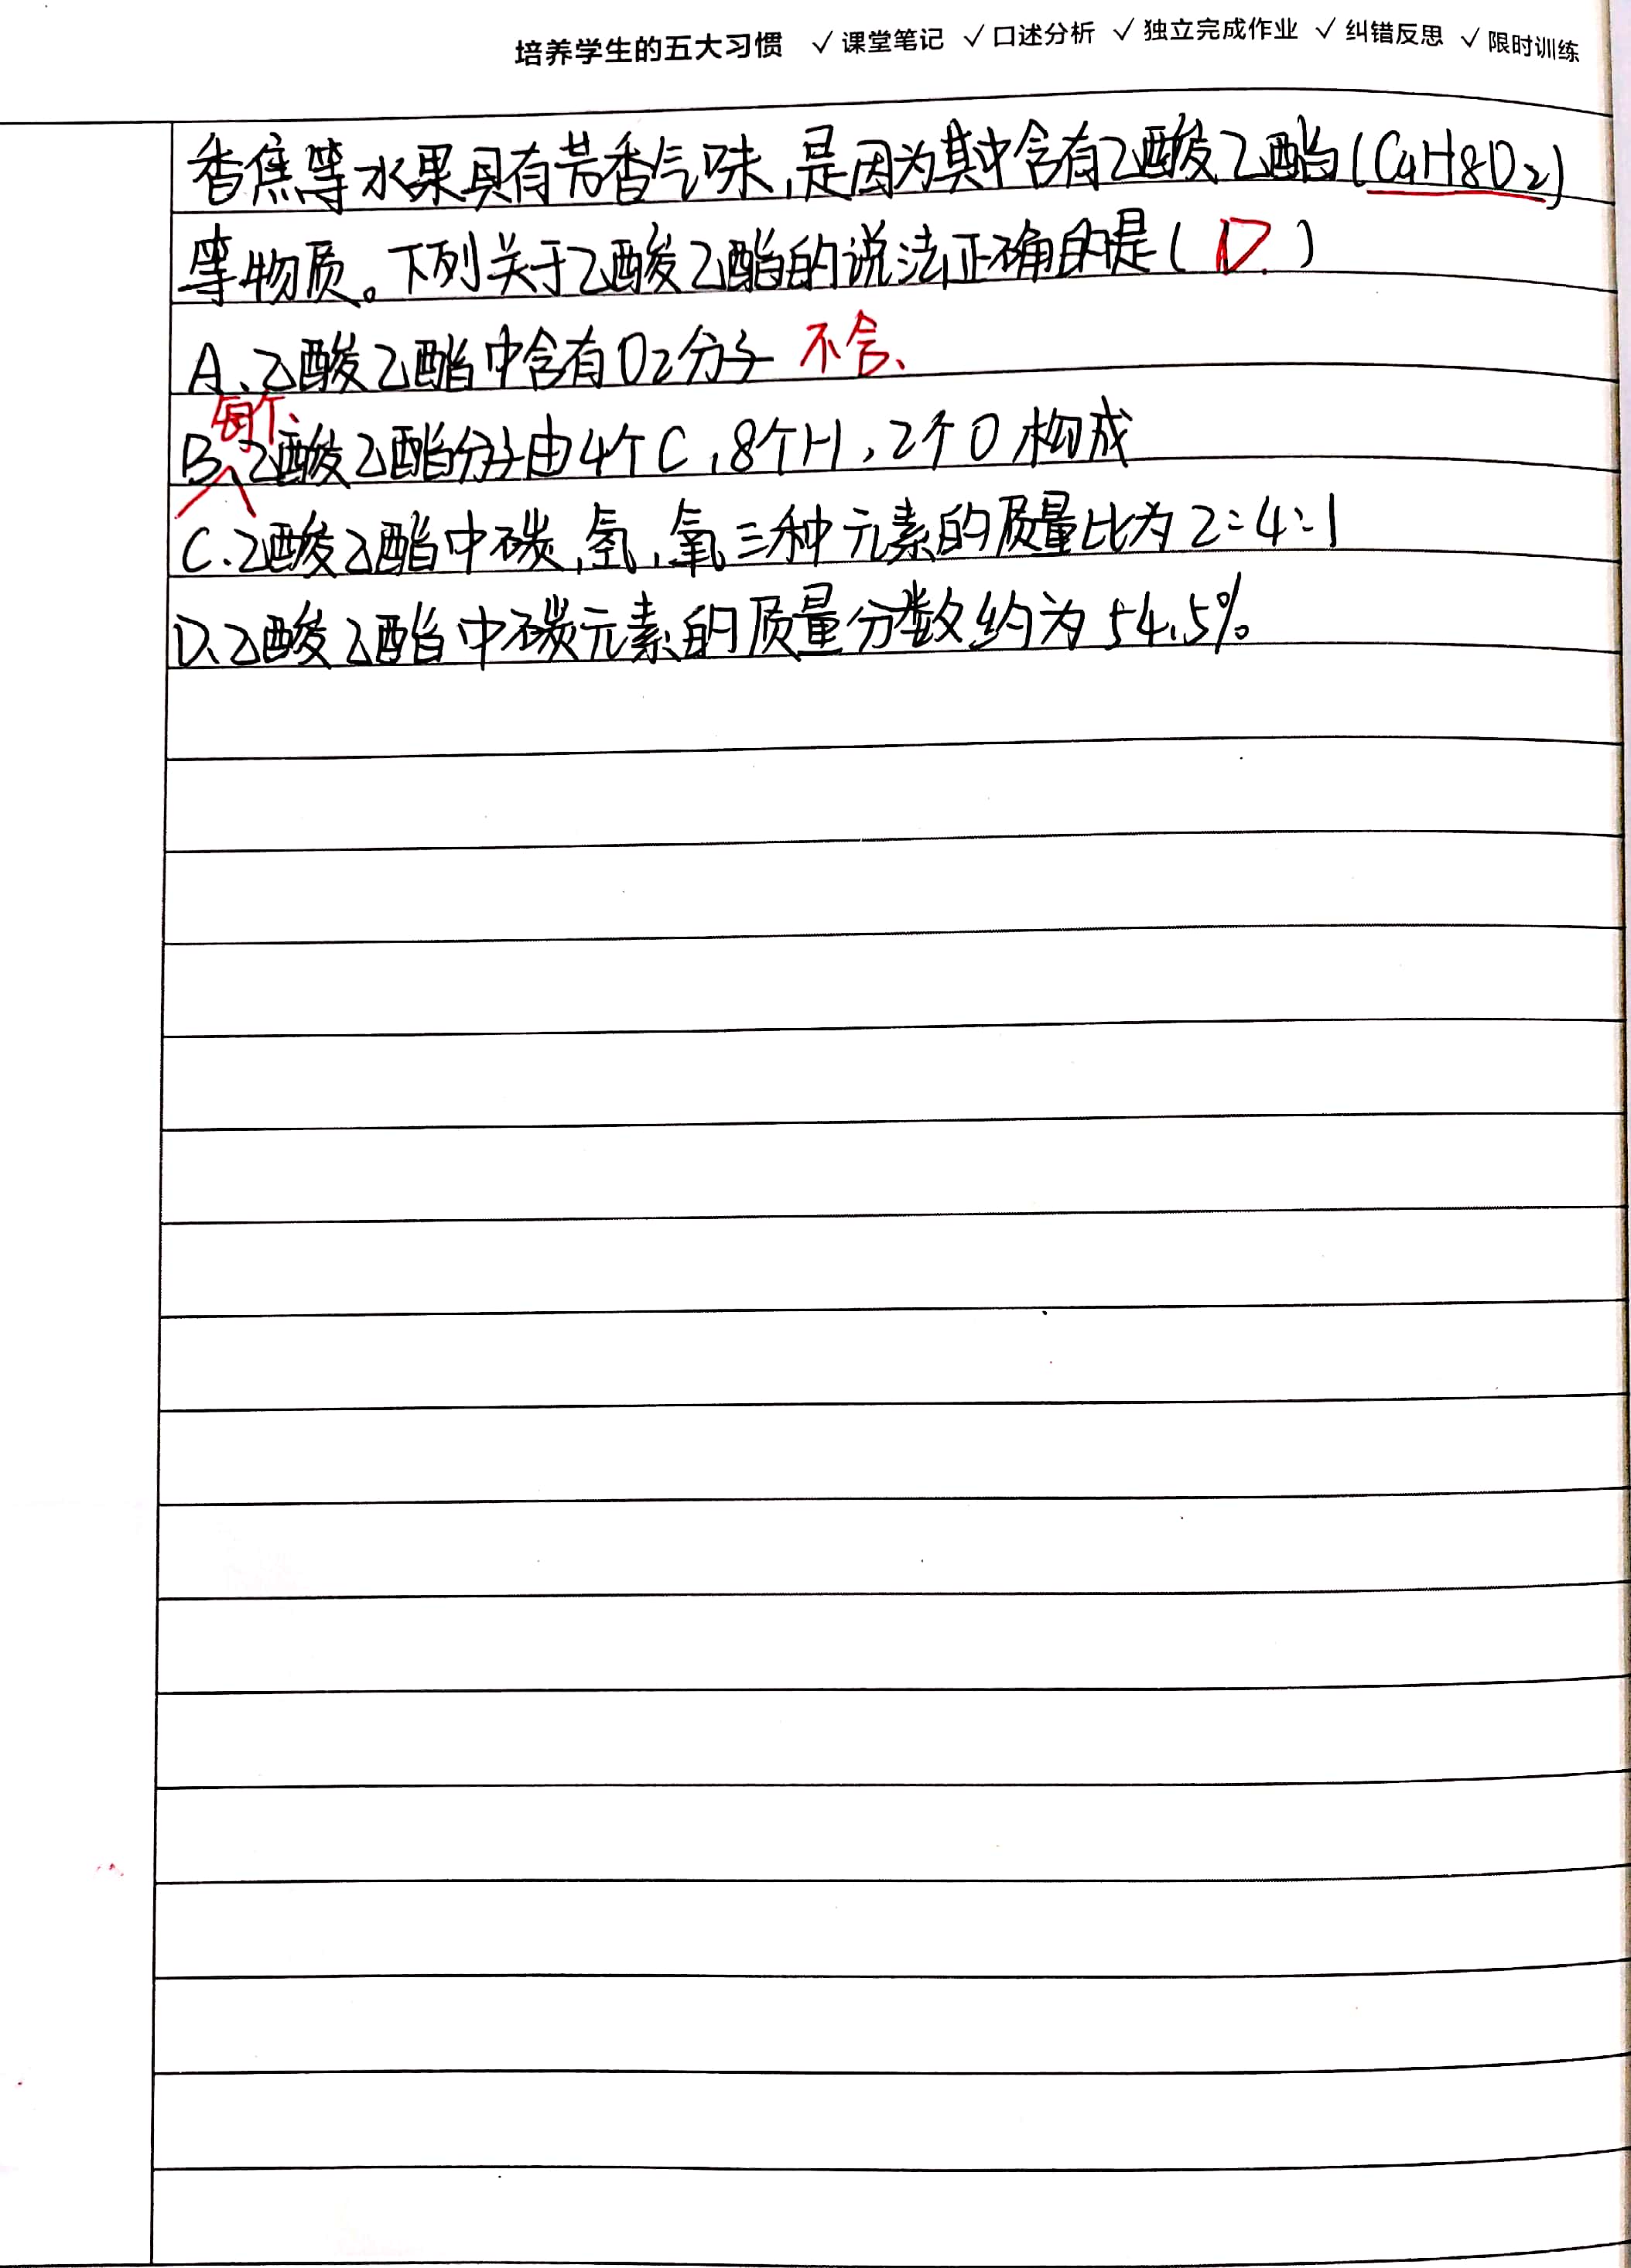 培养学生的五大习惯 √课堂笔记 √口述分析 √独立完成作业 √纠错反思 √限时训练
香焦等水果具有芳香气味,是因为其中含有乙酸乙酯(C4H8O2)
等物质。下列关于乙酸乙酯的说法正确的是( D. )
A、乙酸乙酯中含有O2分子 不含、
每个、
B、乙酸乙酯分子由4个C,8个H,2个O构成
C.乙酸乙酯中碳,氢,氧三种元素的质量比为2:4:1
D、乙酸乙酯中碳元素的质量分数约为54.5%